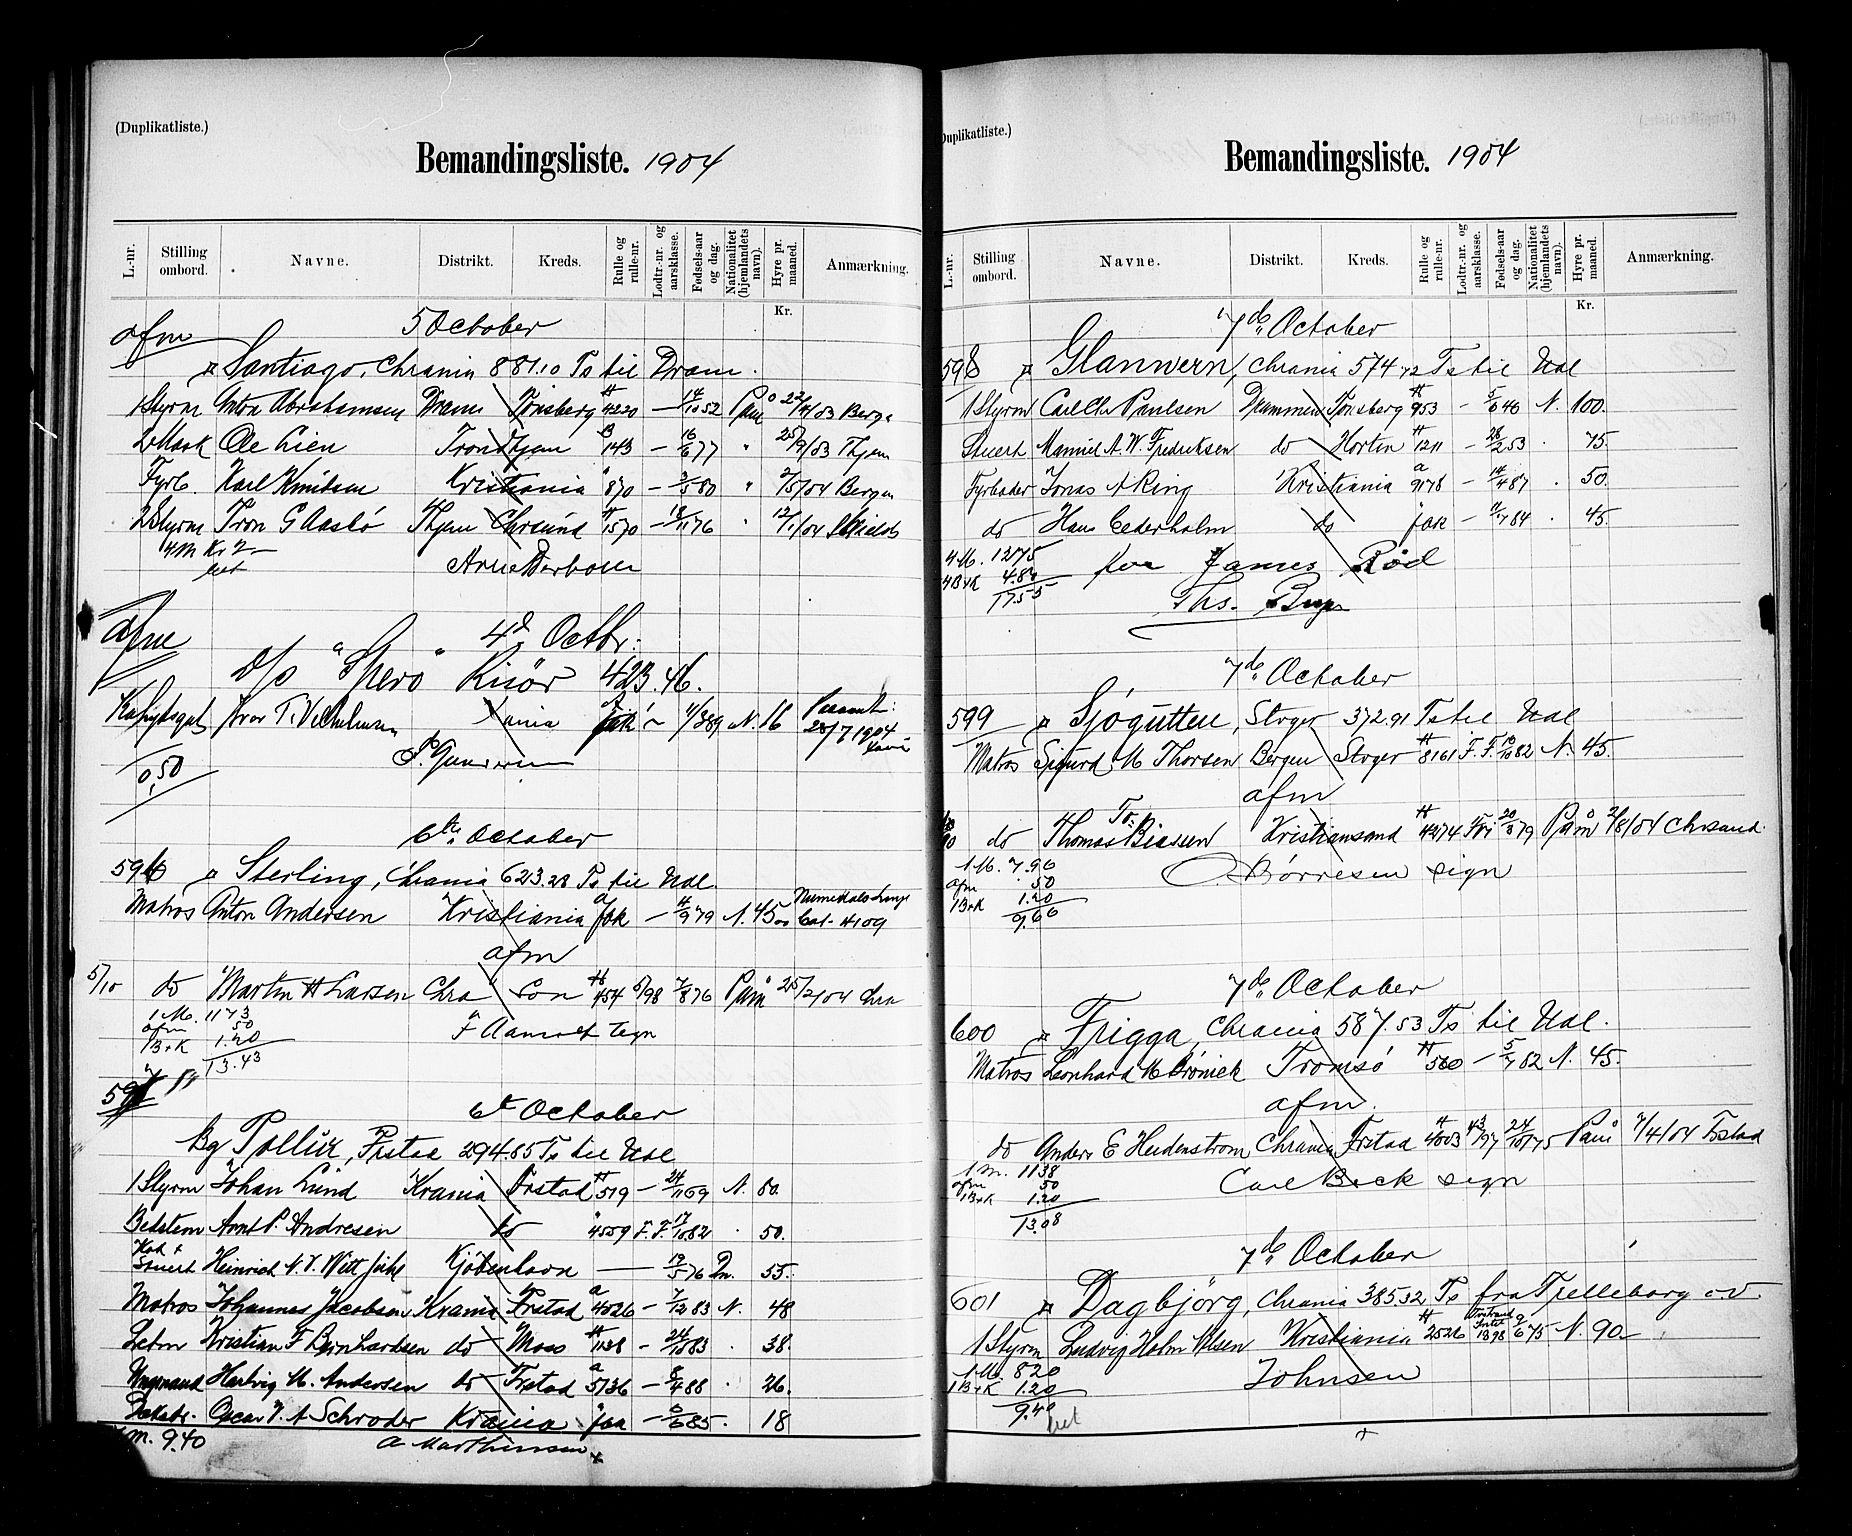 (Duplikatliste.)
Bemandingsliste. 1904
L.-nr. Stilling ombord. Navne. Distrikt. Kreds. Rulle og rulle-nr. Lodtr.-nr. og aarsklasse. Fødsels-aar og dag. Nationalitet (hjemlandets navn). Hyre pr. maaned. Anmærkning.
Kr.
5 October
afm
Santiago, Chrania 881.10 Ts til Dram.
1 Styrm Anton Abrahamsen Dram Tønsberg 4220 — 14/10 52 Paa 22/4/03 Berge
2 Mask Ole Lien Trondhjem 143 — 16/6 77 " 25/9/03 Thjem
Fyrb. Karl Knudsen Kristiania 870 — 3/5 80 " 2/5/04 Bergen
2 Styrm Tron G Aasbö Thjem Chrsund 1570 — 18/11 76 " 12/1/04
4 M Kr 2 —
4 d. Octbr.
afm
D/S "Spero" Risör 423.46.
Ivar T. Vilhelmsen Xania 11/3 89 N. 16 28/7 1904
P. Gundersen
0,50
6te October
596 Sterling, Chrania 623.28 Ts til Udl.
Matros Anton Andersen Kristiania fok — 4/9 79 N. 45
4109
afm
5/10 do Martin H Larsen Chra Son 454 5/98 7/8 76 Paam 25/2/04 Chra
1 M. 11 73
afm 50
1 B+K 1.20
13.43
F Aamodt sign
597
6te October
Bg Pollux, Frstad 294.85 Ts til Udl
1 Styrm Johan Lund Krania Frstad 519 — 24/11 69 N. 80.
Bedstem Arnt P. Andresen do 4559 F. F. 17/10 82 . 50.
Kok + Stuert Heinrich N. V. Witt Juhl Kjöbenhavn — 19/5 76 Dn. 55.
Matros Johannes Jacobsen Krania Frstad 4026 — 7/12 83 N. 48
Letm Kristian F Bernhardsen do Moss 1138 — 24/10 83 . 38.
Ungmand Hartvig M. Andersen do Frstad 5736 — 8/4 88 . 26.
Deksbr. Oscar V. A Schroder Krania fok — 8/6 85 . 18
M. 9.40
A Marthinsen
(Duplikatliste.)
Bemandingsliste. 1904
L.-nr. Stilling ombord. Navne. Distrikt. Kreds. Rulle og rulle-nr. Lodtr.-nr. og aarsklasse. Fødsels-aar og dag. Nationalitet (hjemlandets navn). Hyre pr. maaned. Anmærkning.
Kr.
7de October
598 Glanwern, Chrania 574.72 Ts til Udl
1 Styrm Carl Chr Paulsen Drammen Tønsberg 953 — 5/6 40 N. 100.
Stuert Manuel A. W. Fredriksen do Horten 1211 — 28/2 53 . 75.
Fyrbøder Jonas A Ring Kristiania 9178 — 14/4 87 . 50.
do Hans Cederholm do fok — 84 . 45.
4 M. 12 75
4 B+K 4.80
17.55
for James Rød
Ths.
7de October
599 Sjøgutten, Stvger 372.91 Ts til Udl
Matros Sigurd M Thorsen Bergen Stvger 8161 F. F. 19/10 82 N. 45.
afm
do Thomas To: Biassen Kristiansand 4274 Fri 20/3 79 Paam 2/8/04 Chrsand.
1 M. 7.96
afm . 50
1 B+K 1.20
9.66
O. Börresen sign
7de October
600 Frigga, Chrania 587.53 Ts til Udl.
Matros Leonhard M Brönick Tromsö 560 — 5/7 82 N. 45.
afm.
do Anders E Heidenstrom Chrania Frstad 4003 43/97 24/10 75 Paam 7/4/04 Frstad
1 M. 11 38
afm 50
1 B+K 1.20
13.08
Carl Beck sign
7de October
601 Dagbjörg, Chrania 385.32 Ts fra Trelleborg
1 Styrm Ludvig Holm Olsen Kristiania 2526 1898 9/6 75 N. 90 —
1 M. 8 20
1 B+K 1.20
9.40
Johnsen